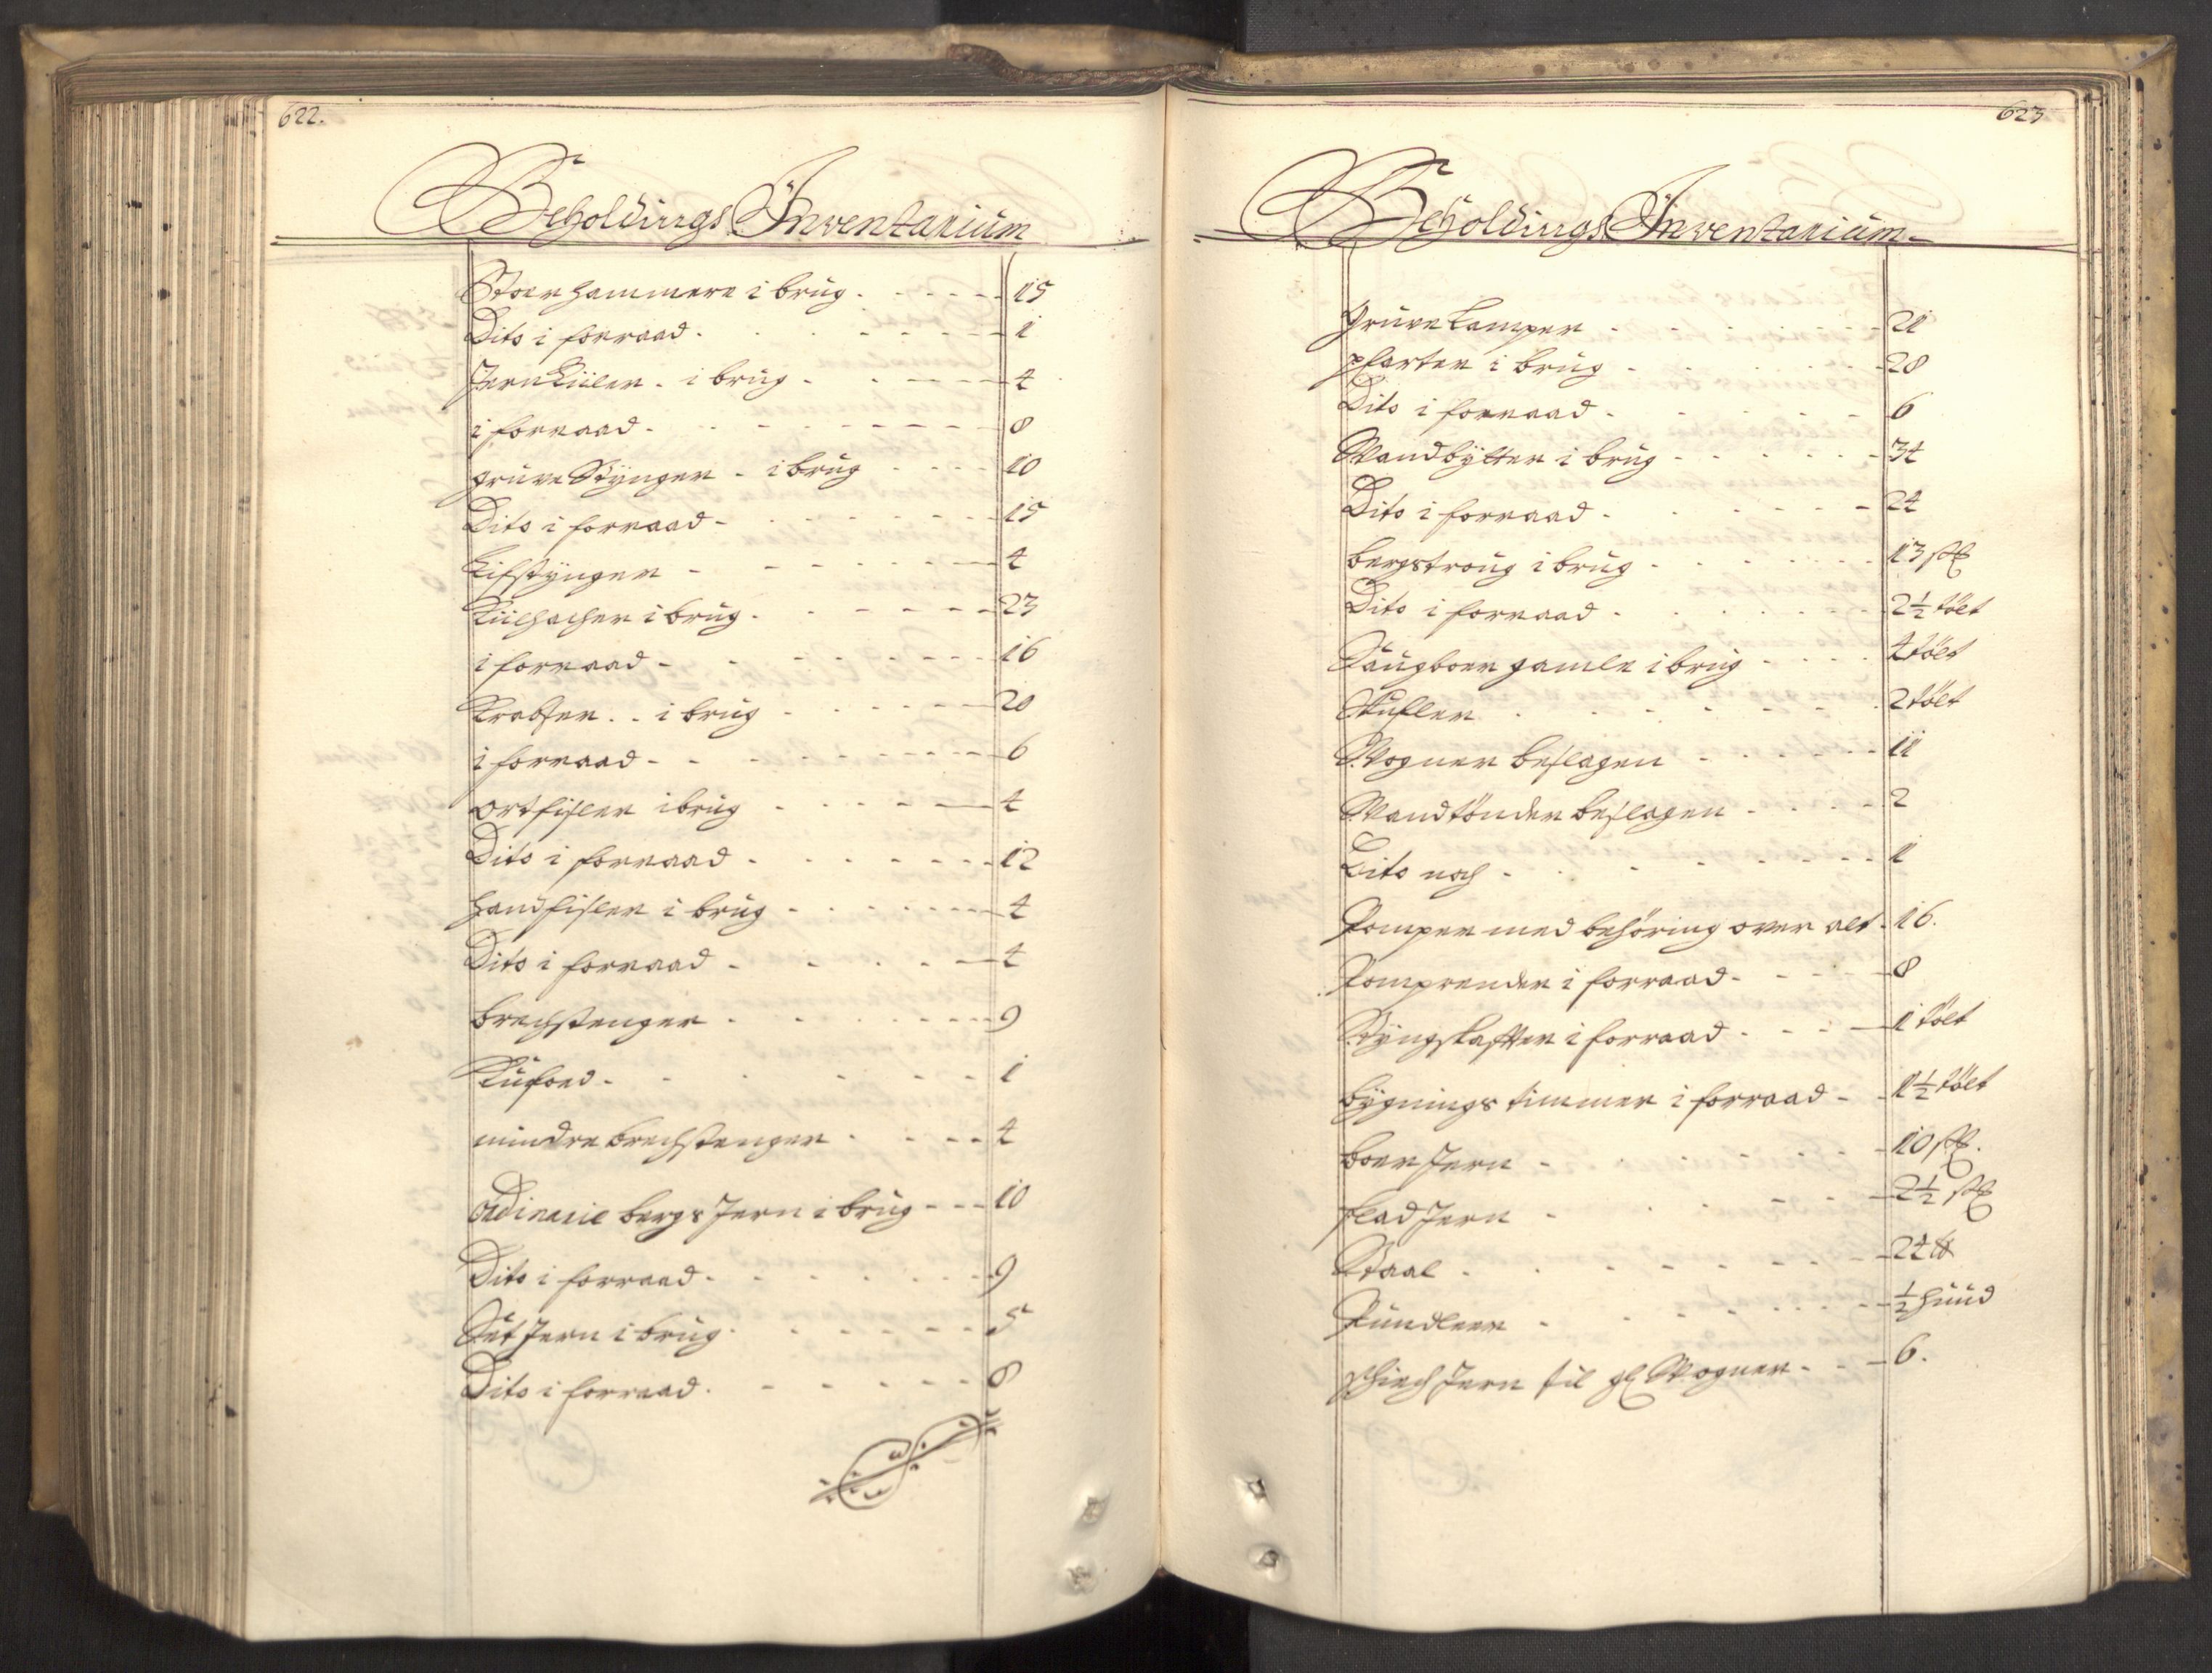 622.
Beholdings Inventarium
Stoer hammere i brug 15
Dito i forraad 1
Jern Kiiler i brug 4
i forraad 8
grüve Stÿnger i brüg 10
Dito i forraad 15
Lifstÿnger 4
Kiilhacher i brüg 23
i forraad 16
Kratser i brüg 20
i forraad 6
ortfisler i brüg 4
Dito i forraad 12
handfisler i brüg 4
Dito i forraad 4
brechstenger 9
Küefoed 1
mindre brechstenger 4
ordinarie bergs Jern i brüg 10
Dito i forraad 9
Süt Jern i brüg 5
Dito i forraad 8
623
Beholdings Inventarium
grüve Lamper 21
i brüg 28
Dito i forraad 6
Wandbÿtter i brüg 34
Dito i forraad 24
bergstroug i brüg 13 st
Dito i forraad 2½ tölt
Saugboer gamle i brüg 4 tölt
2 tölt
Wogner beslagen 11
Wandtönder beslagen 2
Dito noch 1
Pomper med behöring over alt 16.
Pomprender i forraad 8
Stÿngskaffter i forraad 1 tölt
bÿgnings timmer i forraad 1½ tölt
boer Jern 10
flad Jern 2½
Staal 24 ℔
Pündleer ½ hüüd
Jern til gl Wogner 6.